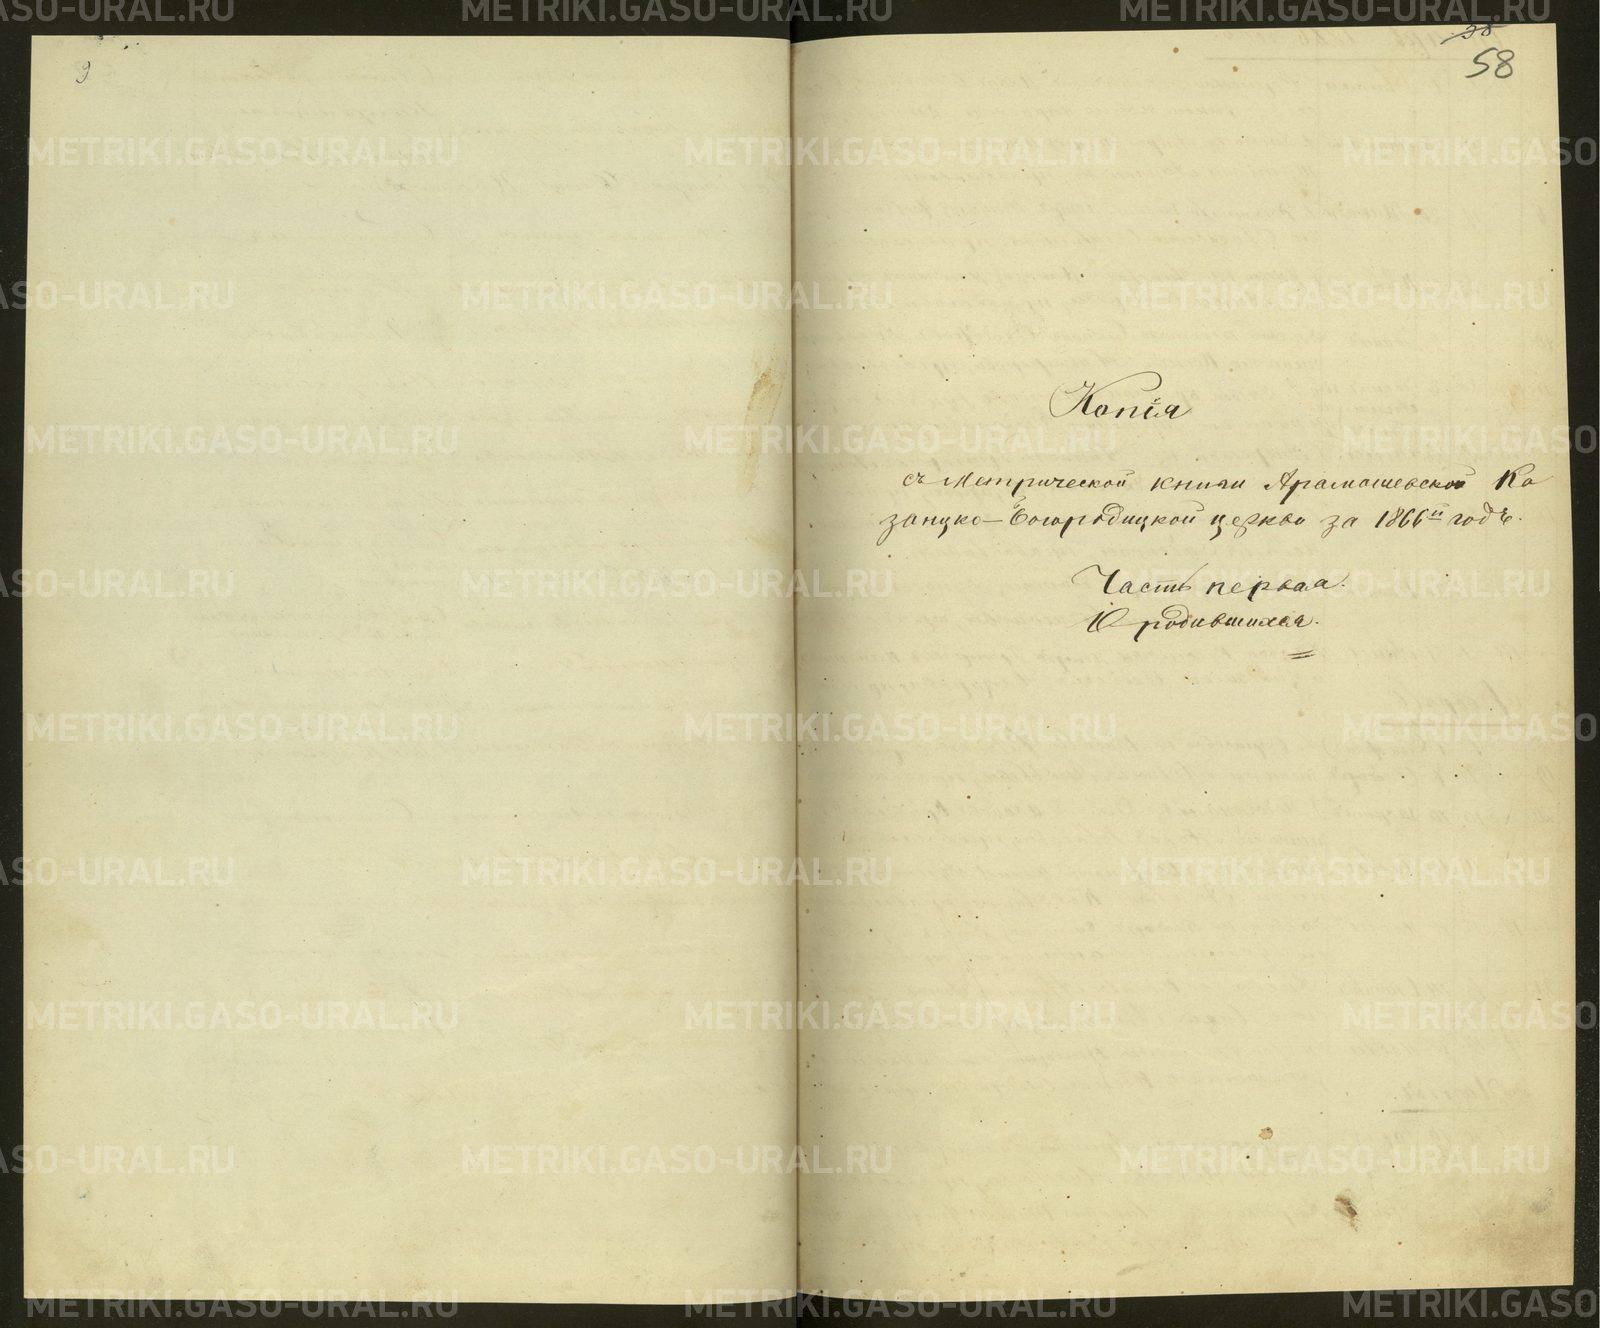 9
58
Копія
съ метрической книги Арамашевской Ка
занско-Богородицкой церкви за 1866й годъ.
Часть первая.
О родившихся.
METRIKI.GASO-URAL.RU